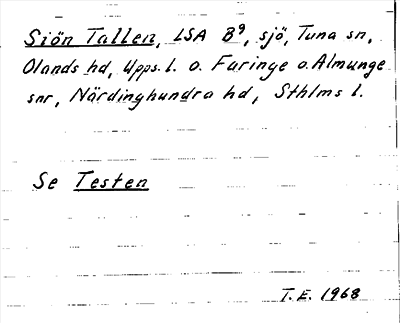 Siön Tallen, LSA B⁹, sjö, Tuna sn,
Olands hd, Upps. l. o. Faringe o. Almunge
snr, Närdinghundra hd, Sthlms l.
Se Testen
T. E. 1968